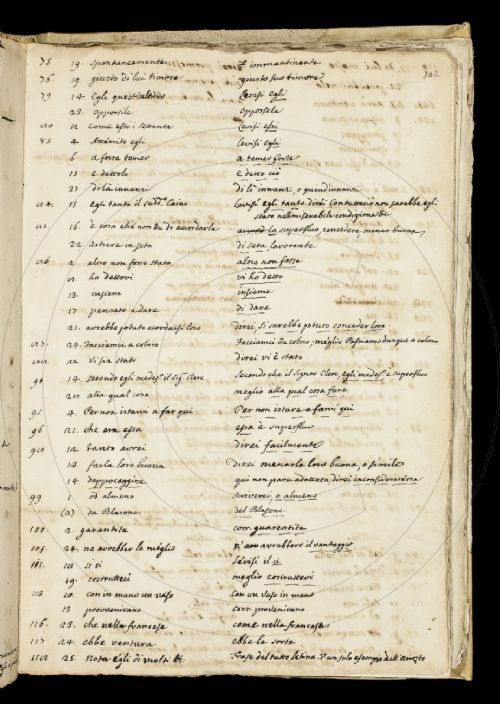 102
75 19. Spontaneamente immantinente
76 19 giusto di lui timore giusto suo timore
79 14. Egli Levisi egli
23. opporsile opporsele
12 come essi i sessanta Levisi essi
83 4. egli Levisi egli
6 a forse temer a temer forse
15 e dettolo e detto ciò
27 di là innanzi di lì innanzi, o quindinnanzi
11 egli tanto il Caino egli tanto. direi Contuttociò non sarebbe egli
stato nella miserabile condizione di
16. è cosa chi non di accordarla la superfluo, concedere, menar buona
22 in seta di seta lavorante
2. altro non fosse stato altro non fosse
ho dettovi vi ho detto
13. insieme insieme
17 pensato a dare di dare
21. avrebbe potuto accordarsi loro direi, si sarebbe potuto conceder loro
27. Facciamci a coloro Facciamci da coloro, meglio Passiamo dunque a coloro
12 vi sia stato direi vi è stato
94 14 secondo egli medes.o il Sig.r Clerc Secondo che il Signor Clerc, egli medes.o è superfluo
20 alla qual cosa meglio alla qual cosa fare
95 4. Per non istarvi a far qui Per non istare a farvi qui
96 21. che era essa essa è superfluo
12 tanto avrei direi facilmente
13 farla loro buona direi menarla loro buona, o simile
14 dappocaggine qui non pare adattata, direi inconsideratezza
99 1 od almeno scriverei, o almeno
(a) da Blasone del Blasone
2. garantita corr. guarentita
24. ne avrebbero la meglio n'avrebbero il vantaggio
10 si ci levisi il ci
19. costrutteci meglio costruttevi
113 10. con in mano un vaso con un vaso in mano
13 provvenivano corr. provenivano
116. 23. che nella francese come nella francese
117 24. ebbe ventura ebbe la sorte
25. Nota egli di molti Frase del tutto latina. V un solo esempio dell'Ariosto